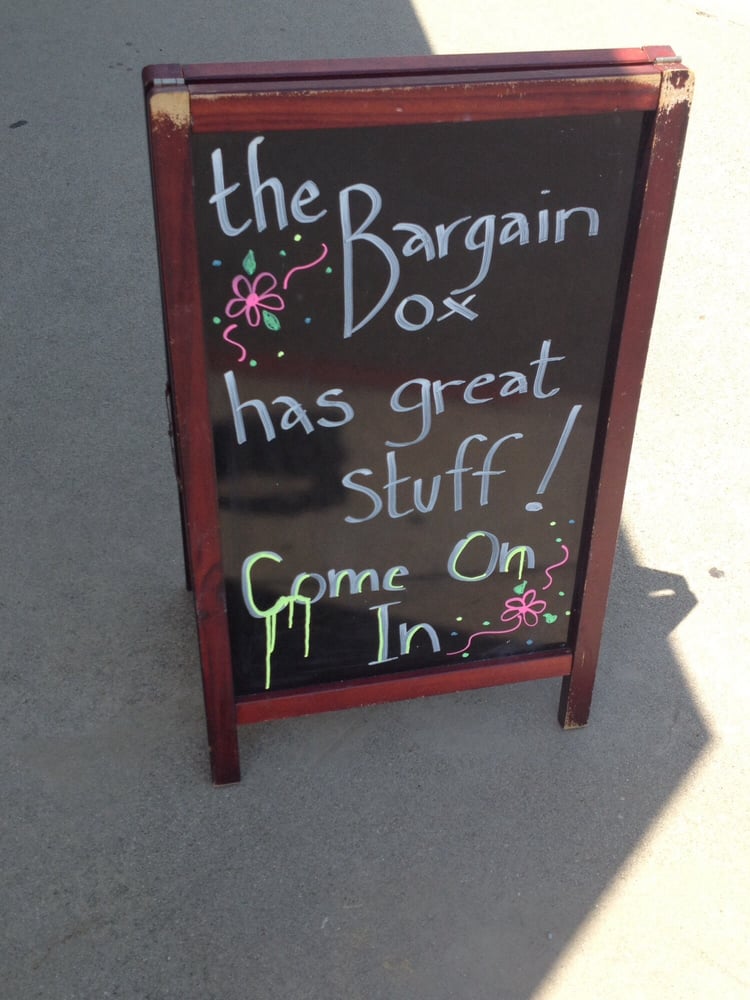 the Bargain
Box
has great
stuff!
Come On
In